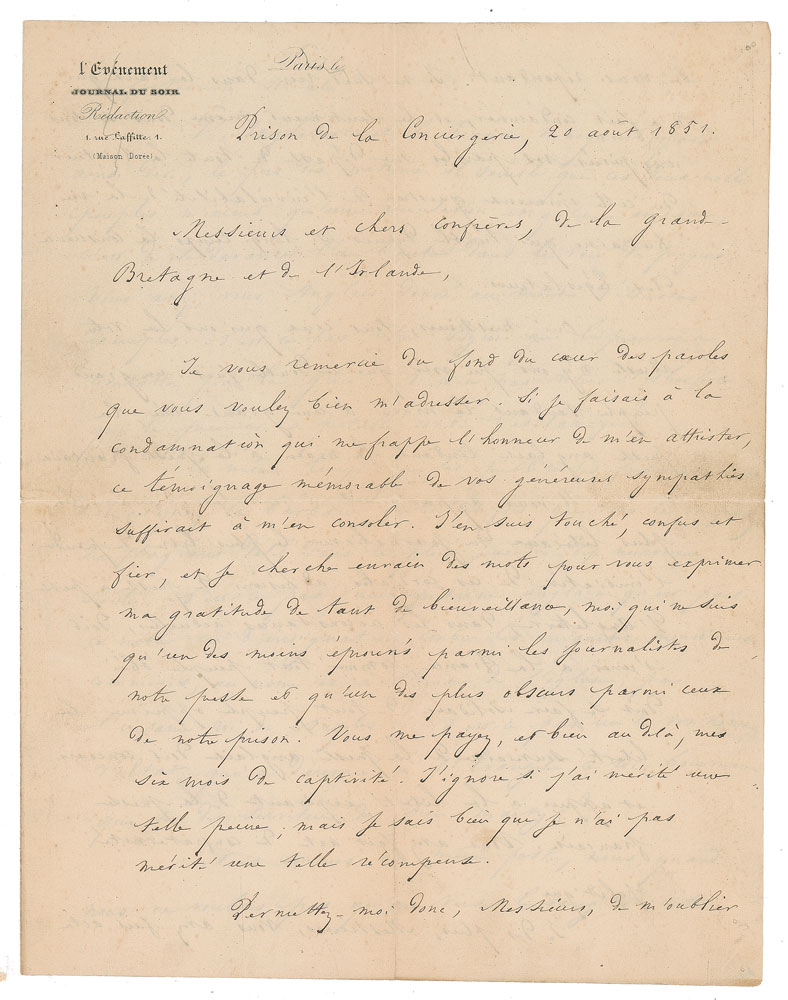 l'Evénement
JOURNAL DU SOIR
Rédaction
1. rue Laffitte. 1.
(Maison Dorée)
Paris, le
Prison de la Conciergerie, 20 août 1851.
Messieurs et chers confrères, de la grande-
Bretagne et de l'Irlande,
Je vous remercie du fond du cœur des paroles
que vous voulez bien m'adresser. Si je faisais à la
condamnation qui me frappe l'honneur de m'en attrister,
ce témoignage mémorable de vos généreuses sympathies
suffirait à m'en consoler. J'en suis touché, confus et
fier, et je cherche en vain des mots pour vous exprimer
ma gratitude de tant de bienveillance, moi qui ne suis
qu'un des moins éprouvés parmi les journalistes de
notre presse et qu'un des plus obscurs parmi ceux
de notre prison. Vous me payez, et bien au delà, mes
six mois de captivité. J'ignore si j'ai mérité une
telle peine ; mais je sais bien que je n'ai pas
mérité une telle récompense.
Permettez-moi donc, Messieurs, de m'oublier